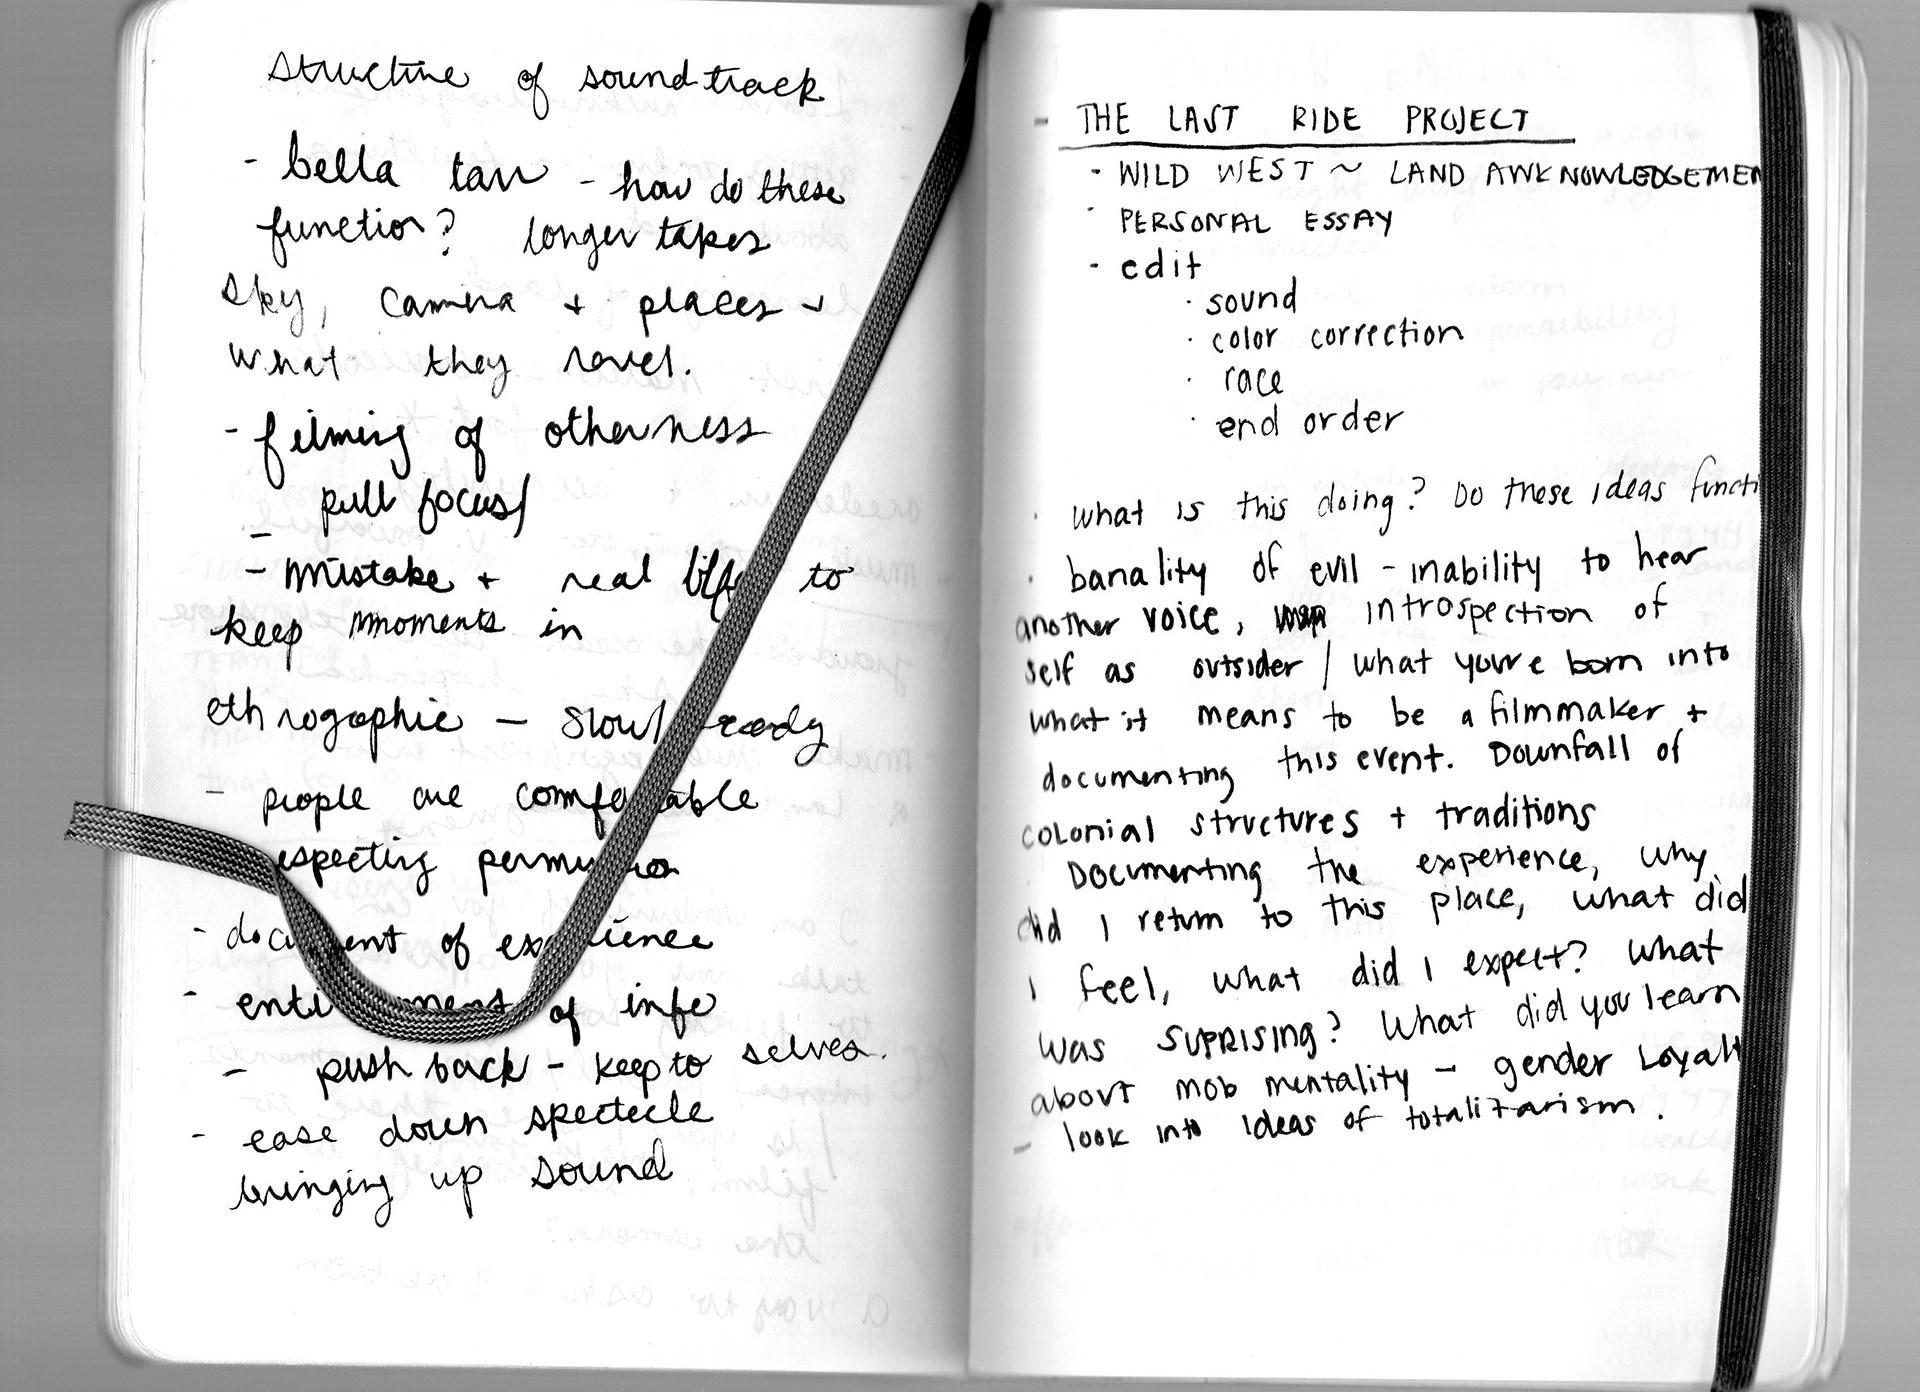 structure of soundtrack
- bella tarr - how do these
function? longer takes
sky, camera + places
what they revel.
- filming of otherness
pull focus/
-
- mistake + real life to
keep mmoments in
ethnographic - slow/ ready
- people are comfortable
respecting permission
- document of experience
- enti ment of info
- push back - keep to selves.
- ease down spectecle
bringing up sound
- THE LAST RIDE PROJECT
- WILD WEST ~ LAND AWKNOWLEDGEMEN
- PERSONAL ESSAY
- edit
· sound
· color correction
· race
· end order
· what is this doing? Do these ideas functi
· banality of evil - inability to hear
another voice, introspection of
self as outsider / what youre born into
what it means to be a filmmaker +
documenting this event. Downfall of
colonial structures + traditions
Documenting the experience, why
did I return to this place, what did
I feel, what did I expect? What
was suprising? What did you learn
about mob mentality - gender Loyalt
- look into ideas of totalitarism.